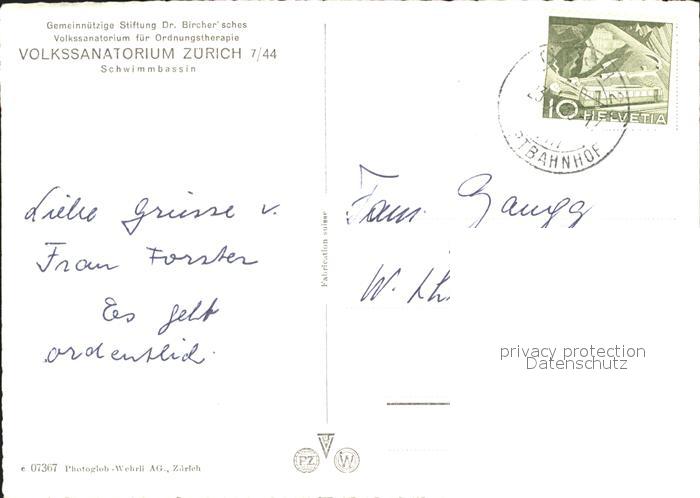 Gemeinnützige Stiftung Dr. Bircher'sches
Volkssanatorium für Ordnungstherapie
VOLKSSANATORIUM ZÜRICH 7/44
Schwimmbassin
10 HELVETIA
TBAHNHOF
Liebe Grüsse v.
Frau Forster
Es geht
ordentlich.
Fabrication suisse
Fam. Gangg
W.
privacy protection
Datenschutz
PZ W
c 07367 Photoglob-Wehrli AG., Zürich